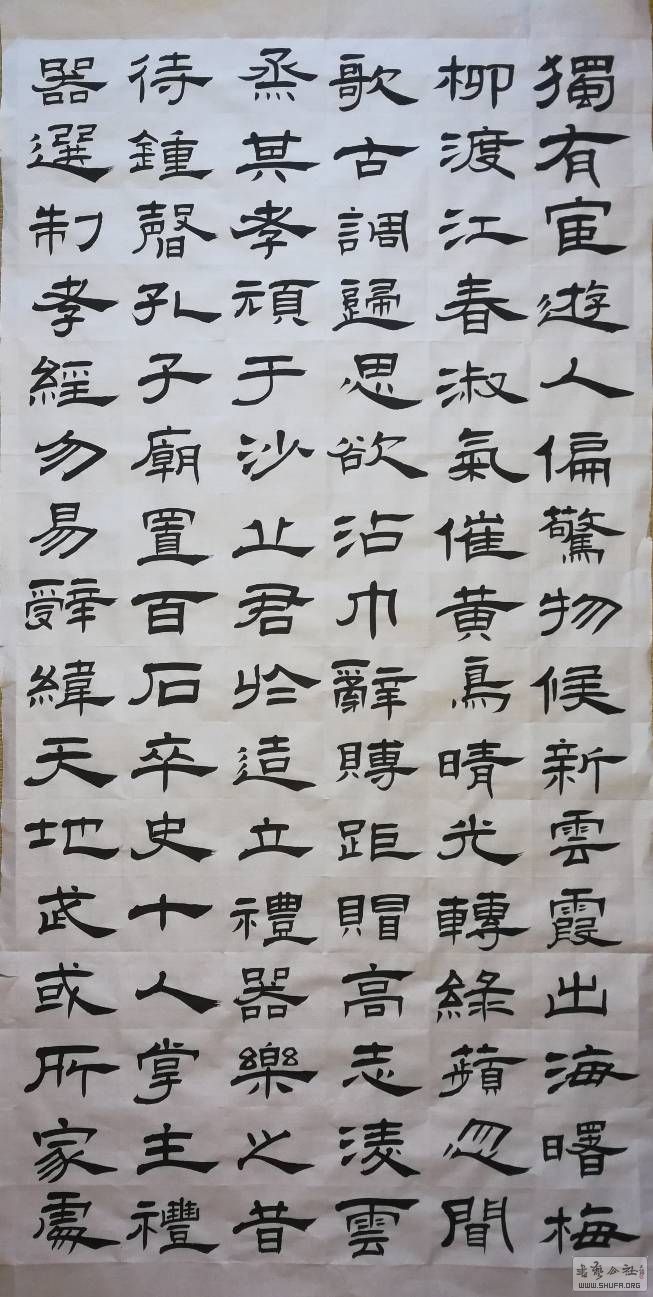 獨有宦遊人偏驚物候新雲霞出海曙梅
柳渡江春淑氣催黄鳥晴光轉綠蘋忽聞
歌古調歸思欲沾巾辭賻距賵高志淩雲
烝其孝頑于沙止君於造立禮器樂之昔
待鍾孔子廟置百石卒史十人掌主禮
器選制孝經勿易辤緯天地武或所家處
WWW.SHUFA.ORG